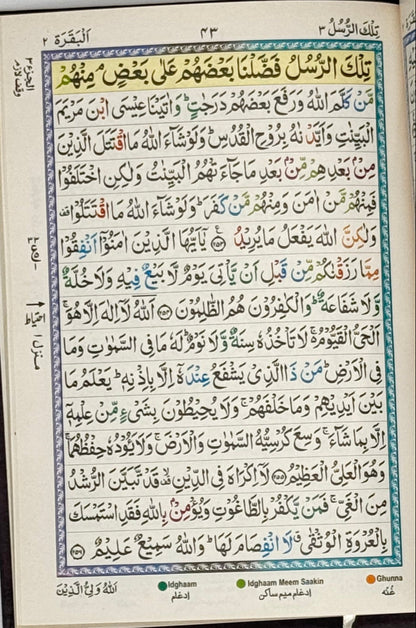 تِلْكَ الرُّسُلُ ٣
٤٣
اَلْبَقَرَة ٢
تِلْكَ الرُّسُلُ فَضَّلْنَا بَعْضَهُمْ عَلٰى بَعْضٍ ۘ مِنْهُمْ
مَّنْ كَلَّمَ اللّٰهُ وَرَفَعَ بَعْضَهُمْ دَرَجٰتٍ ؕ وَاٰتَيْنَا عِيْسَى ابْنَ مَرْيَمَ
الْبَيِّنٰتِ وَاَيَّدْنٰهُ بِرُوْحِ الْقُدُسِ ؕ وَلَوْ شَآءَ اللّٰهُ مَا اقْتَتَلَ الَّذِيْنَ
مِنْۢ بَعْدِهِمْ مِّنْۢ بَعْدِ مَا جَآءَتْهُمُ الْبَيِّنٰتُ وَلٰكِنِ اخْتَلَفُوْا
فَمِنْهُمْ مَّنْ اٰمَنَ وَمِنْهُمْ مَّنْ كَفَرَ ؕ وَلَوْ شَآءَ اللّٰهُ مَا اقْتَتَلُوْا
وَلٰكِنَّ اللّٰهَ يَفْعَلُ مَا يُرِيْدُ ﴿٢٥٣﴾ يٰۤاَيُّهَا الَّذِيْنَ اٰمَنُوْۤا اَنْفِقُوْا
مِمَّا رَزَقْنٰكُمْ مِّنْ قَبْلِ اَنْ يَّاْتِيَ يَوْمٌ لَّا بَيْعٌ فِيْهِ وَلَا خُلَّةٌ
وَّلَا شَفَاعَةٌ ؕ وَالْكٰفِرُوْنَ هُمُ الظّٰلِمُوْنَ ﴿٢٥٤﴾ اَللّٰهُ لَاۤ اِلٰهَ اِلَّا هُوَ ۚ
اَلْحَيُّ الْقَيُّوْمُ ۚ لَا تَاْخُذُهٗ سِنَةٌ وَّلَا نَوْمٌ ؕ لَهٗ مَا فِي السَّمٰوٰتِ وَمَا
فِي الْاَرْضِ ؕ مَنْ ذَا الَّذِيْ يَشْفَعُ عِنْدَهٗۤ اِلَّا بِاِذْنِهٖ ؕ يَعْلَمُ مَا
بَيْنَ اَيْدِيْهِمْ وَمَا خَلْفَهُمْ ۚ وَلَا يُحِيْطُوْنَ بِشَيْءٍ مِّنْ عِلْمِهٖۤ
اِلَّا بِمَا شَآءَ ۚ وَسِعَ كُرْسِيُّهُ السَّمٰوٰتِ وَالْاَرْضَ ۚ وَلَا يَـُٔوْدُهٗ حِفْظُهُمَا ۚ
وَهُوَ الْعَلِيُّ الْعَظِيْمُ ﴿٢٥٥﴾ لَاۤ اِكْرَاهَ فِي الدِّيْنِ ۙ قَدْ تَّبَيَّنَ الرُّشْدُ
مِنَ الْغَيِّ ۚ فَمَنْ يَّكْفُرْ بِالطَّاغُوْتِ وَيُؤْمِنْۢ بِاللّٰهِ فَقَدِ اسْتَمْسَكَ
بِالْعُرْوَةِ الْوُثْقٰى ۗ لَا انْفِصَامَ لَهَا ؕ وَاللّٰهُ سَمِيْعٌ عَلِيْمٌ ﴿٢٥٦﴾
الجزء ٣
وقف لازم
منزل ١
اَللّٰهُ وَلِيُّ الَّذِيْنَ
Idghaam
ادغام
Idghaam Meem Saakin
ادغام میم ساکن
Ghunna
غُنّه